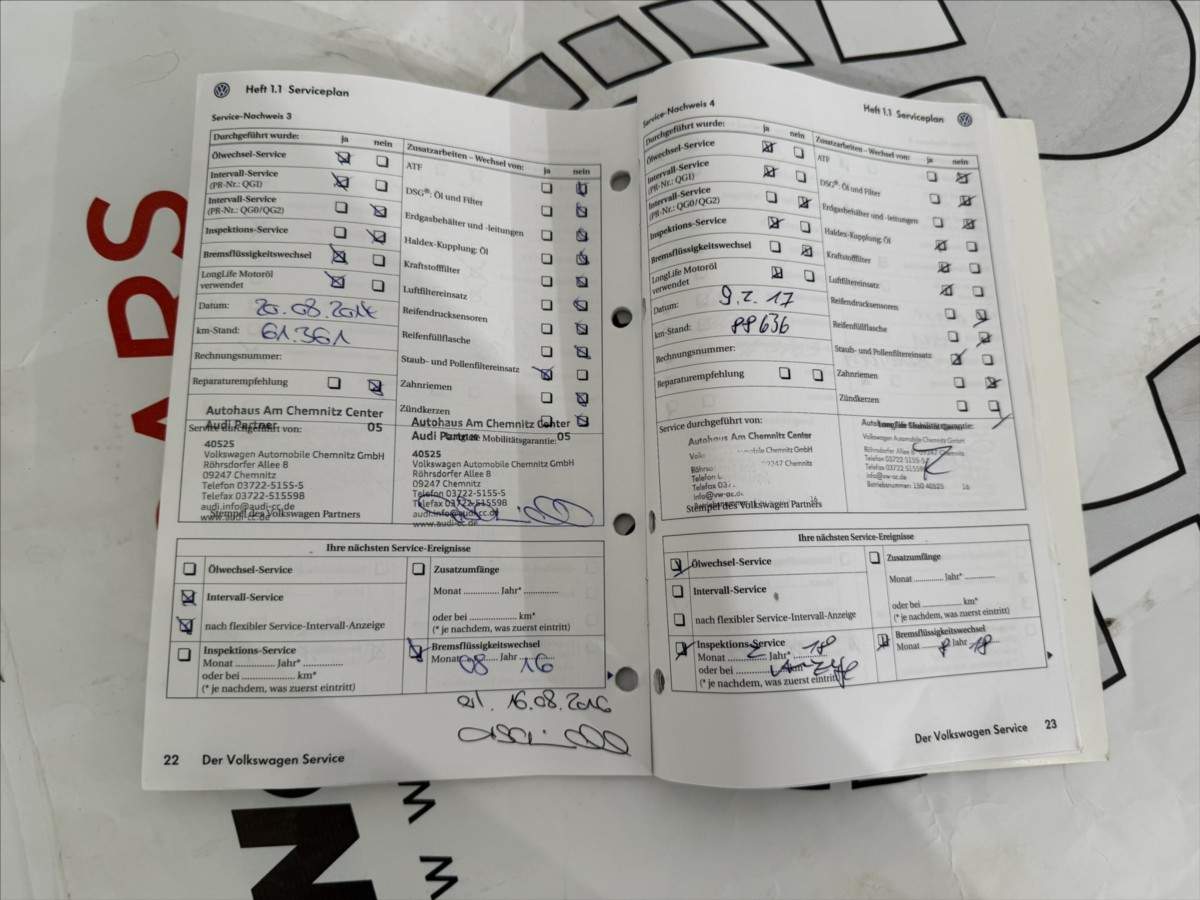 Heft 1.1 Serviceplan
Service-Nachweis 3
Durchgeführt wurde: ja nein
Ölwechsel-Service
Intervall-Service
(PR-Nr.: QG1)
Intervall-Service
(PR-Nr.: QG0/QG2)
Inspektions-Service
Bremsflüssigkeitswechsel
LongLife Motoröl
verwendet
Datum: 20.08.2014
km-Stand: 61.361
Rechnungsnummer:
Reparaturempfehlung
Zusatzarbeiten – Wechsel von: ja nein
ATF
DSG®: Öl und Filter
Erdgasbehälter und -leitungen
Haldex-Kupplung: Öl
Kraftstofffilter
Luftfiltereinsatz
Reifendrucksensoren
Reifenfüllflasche
Staub- und Pollenfiltereinsatz
Zahnriemen
Zündkerzen
Autohaus Am Chemnitz Center
Audi Partner 05
Service durchgeführt von:
40525
Volkswagen Automobile Chemnitz GmbH
Röhrsdorfer Allee 8
09247 Chemnitz
Telefon 03722-5155-5
Telefax 03722-515598
audi.info@audi-cc.de
www.audi-cc.de
Stempel des Volkswagen Partners
Autohaus Am Chemnitz Center
Audi Partner 05
Mobilitätsgarantie:
40525
Volkswagen Automobile Chemnitz GmbH
Röhrsdorfer Allee 8
09247 Chemnitz
Telefon 03722-5155-5
Telefax 03722-515598
audi.info@audi-cc.de
www.audi-cc.de
Ihre nächsten Service-Ereignisse
Ölwechsel-Service
Intervall-Service
nach flexibler Service-Intervall-Anzeige
Inspektions-Service
Monat .............. Jahr* ..............
oder bei .................... km*
(* je nachdem, was zuerst eintritt)
Zusatzumfänge
Monat .............. Jahr* ..............
oder bei .................... km*
(* je nachdem, was zuerst eintritt)
Bremsflüssigkeitswechsel
Monat 08 Jahr 16
16.08.2016
22 Der Volkswagen Service
Heft 1.1 Serviceplan
Service-Nachweis 4
Durchgeführt wurde: ja nein
Ölwechsel-Service
Intervall-Service
(PR-Nr.: QG1)
Intervall-Service
(PR-Nr.: QG0/QG2)
Inspektions-Service
Bremsflüssigkeitswechsel
LongLife Motoröl
verwendet
Datum: 9.2.17
km-Stand: 88636
Rechnungsnummer:
Reparaturempfehlung
Zusatzarbeiten – Wechsel von: ja nein
ATF
DSG®: Öl und Filter
Erdgasbehälter und -leitungen
Haldex-Kupplung: Öl
Kraftstofffilter
Luftfiltereinsatz
Reifendrucksensoren
Reifenfüllflasche
Staub- und Pollenfiltereinsatz
Zahnriemen
Zündkerzen
Service durchgeführt von:
Autohaus Am Chemnitz Center
Chemnitz GmbH
Chemnitz
info@vw-ac.de
16
Stempel des Volkswagen Partners
Volkswagen Automobile Chemnitz GmbH
Röhrsdorfer Allee 8 09247 Chemnitz
Telefon 03722-5155-5
Telefax 03722-515598
info@vw-ac.de
Betriebsnummer: 150 40525 16
Ihre nächsten Service-Ereignisse
Ölwechsel-Service
Intervall-Service
nach flexibler Service-Intervall-Anzeige
Inspektions-Service
Monat 2 Jahr* 18
oder bei km*
(* je nachdem, was zuerst eintritt)
Zusatzumfänge
Monat .............. Jahr* ..............
oder bei .................... km*
(* je nachdem, was zuerst eintritt)
Bremsflüssigkeitswechsel
Monat 8 Jahr 18
Der Volkswagen Service 23